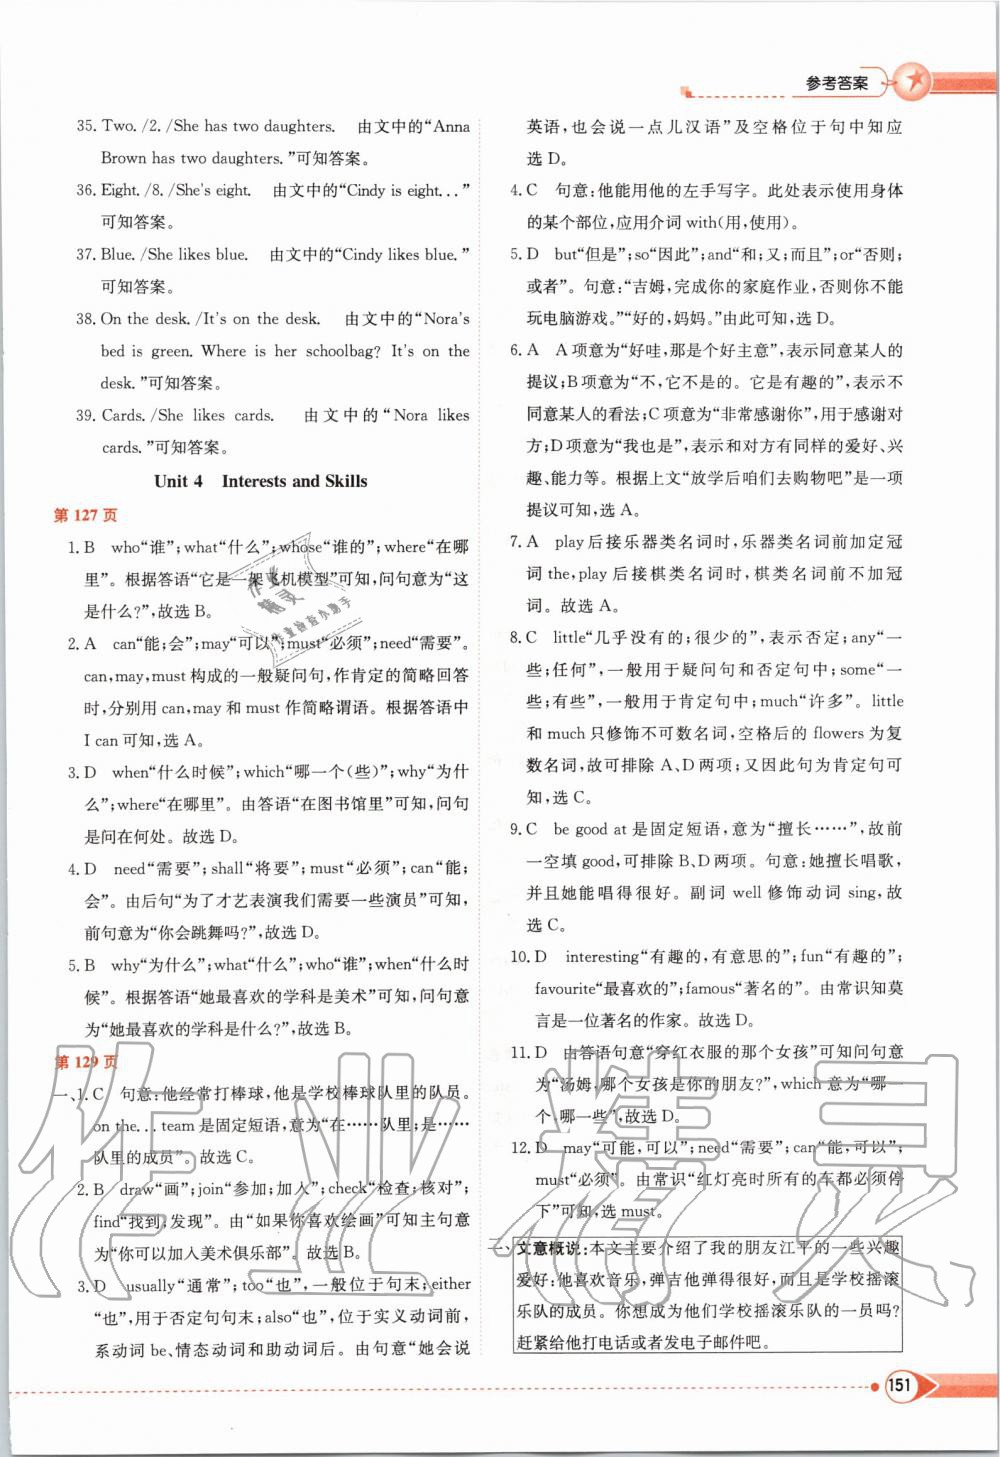 参考答案
35. Two. /2. /She has two daughters.　由文中的“Anna
Brown has two daughters. ”可知答案。
36. Eight. /8. /She's eight.　由文中的“Cindy is eight. . . ”
可知答案。
37. Blue. /She likes blue.　由文中的“Cindy likes blue. ”
可知答案。
38. On the desk. /It's on the desk.　由文中的“Nora's
bed is green. Where is her schoolbag? It's on the
desk. ”可知答案。
39. Cards. /She likes cards.　由文中的“Nora likes
cards. ”可知答案。
Unit 4　Interests and Skills
第 127 页
1. B　who“谁”;what“什么”;whose“谁的”;where“在哪
里”。根据答语“它是一架飞机模型”可知,问句意为“这
是什么?”,故选 B。
2. A　can“能;会”;may“可以”;must“必须”;need“需要”。
can,may,must 构成的一般疑问句,作肯定的简略回答
时,分别用 can,may 和 must 作简略谓语。根据答语中
I can 可知,选 A。
3. D　when“什么时候”;which“哪一个(些)”;why“为什
么”;where“在哪里”。由答语“在图书馆里”可知,问句
是问在何处。故选 D。
4. D　need“需要”;shall“将要”;must“必须”;can“能;
会”。由后句“为了才艺表演我们需要一些演员”可知,
前句意为“你会跳舞吗?”,故选 D。
5. B　why“为什么”;what“什么”;who“谁”;when“什么时
候”。根据答语“她最喜欢的学科是美术”可知,问句意
为“她最喜欢的学科是什么?”,故选 B。
第 129 页
一、1. C　句意:他经常打棒球,他是学校棒球队里的队员。
on the. . . team 是固定短语,意为“在……队里;是……
队里的成员”。故选 C。
2. B　draw“画”;join“参加;加入”;check“检查;核对”;
find“找到,发现”。由“如果你喜欢绘画”可知主句意
为“你可以加入美术俱乐部”。故选 B。
3. D　usually“通常”;too“也”,一般位于句末;either
“也”,用于否定句句末;also“也”,位于实义动词前,
系动词 be、情态动词和助动词后。由句意“她会说
英语,也会说一点儿汉语”及空格位于句中知应
选 D。
4. C　句意:他能用他的左手写字。此处表示使用身体
的某个部位,应用介词 with(用,使用)。
5. D　but“但是”;so“因此”;and“和;又;而且”;or“否则;
或者”。句意:“吉姆,完成你的家庭作业,否则你不能
玩电脑游戏。”“好的,妈妈。”由此可知,选 D。
6. A　A 项意为“好哇,那是个好主意”,表示同意某人的
提议;B 项意为“不,它不是的。它是有趣的”,表示不
同意某人的看法;C 项意为“非常感谢你”,用于感谢对
方;D 项意为“我也是”,表示和对方有同样的爱好、兴
趣、能力等。根据上文“放学后咱们去购物吧”是一项
提议可知,选 A。
7. A　play 后接乐器类名词时,乐器类名词前加定冠
词 the,play 后接棋类名词时,棋类名词前不加冠
词。故选 A。
8. C　little“几乎没有的;很少的”,表示否定;any“一
些;任何”,一般用于疑问句和否定句中;some“一
些;有些”,一般用于肯定句中;much“许多”。little
和 much 只修饰不可数名词,空格后的 flowers 为复
数名词,故可排除 A、D 两项;又因此句为肯定句可
知,选 C。
9. C　be good at 是固定短语,意为“擅长……”,故前
一空填 good,可排除 B、D 两项。句意:她擅长唱歌,
并且她能唱得很好。副词 well 修饰动词 sing,故
选 C。
10. D　interesting“有趣的,有意思的”;fun“有趣的”;
favourite“最喜欢的”;famous“著名的”。由常识知莫
言是一位著名的作家。故选 D。
11. D　由答语句意“穿红衣服的那个女孩”可知问句意
为“汤姆,哪个女孩是你的朋友?”,which 意为“哪一
个,哪一些”,故选 D。
12. D　may“可能,可以”;need“需要”;can“能,可以”;
must“必须”。由常识“红灯亮时所有的车都必须停
下”可知,选 must。
二、文意概说:本文主要介绍了我的朋友江平的一些兴趣
爱好:他喜欢音乐,弹吉他弹得很好,而且是学校摇滚
乐队的成员。你想成为他们学校摇滚乐队的一员吗?
赶紧给他打电话或者发电子邮件吧。
151
作业精灵